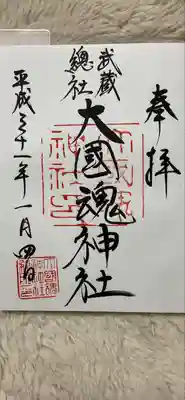 奉拝
武蔵
總社
大國魂神社
平成三十一年一月四日